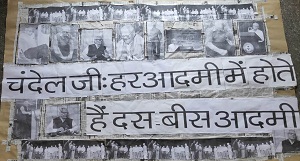 चंदेल जीःहर आदमी में होते
हैं दस-बीस आदमी